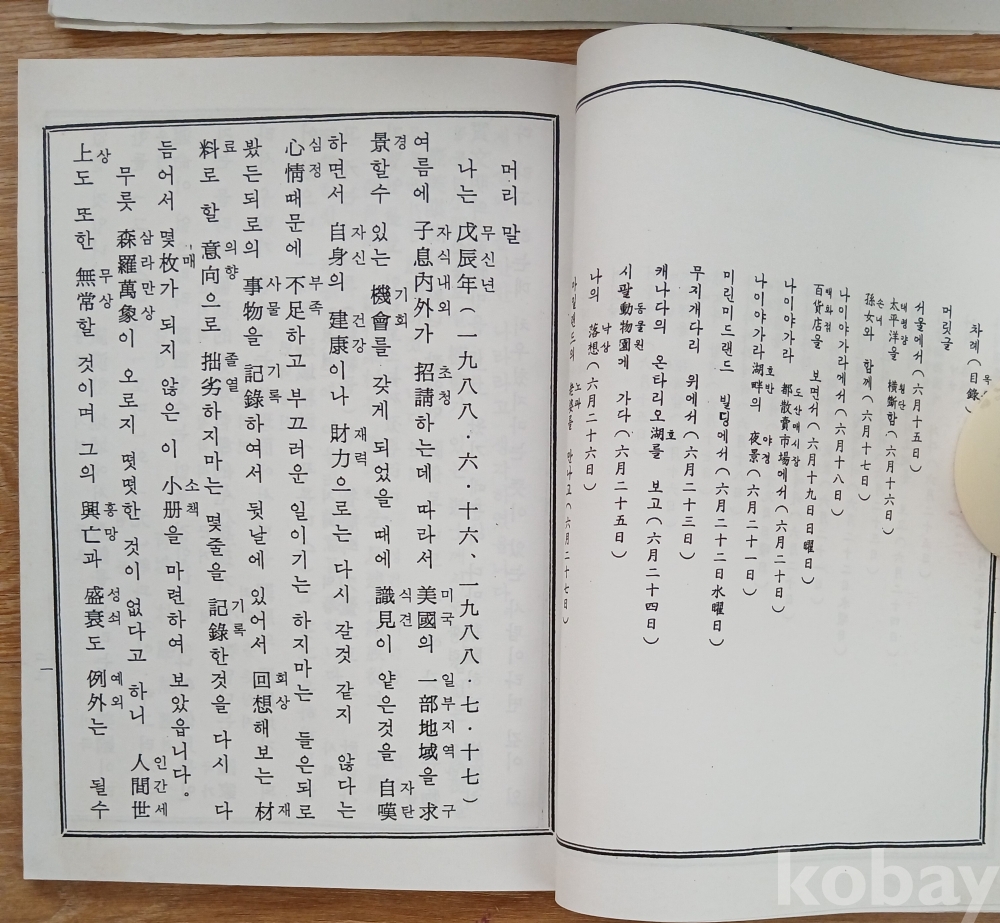 차례(目錄)
머릿글
서울에서(六月十五日)
태평양 횡단
太平洋을 橫斷함(六月十六日)
손녀
孫女와 함께(六月十七日)
나이야가라에서(六月十八日)
백화점
百貨店을 보면서(六月十九日日曜日)
도산매시장
나이야가라 都散賣市場에서(六月二十日)
호반 야경
나이야가라湖畔의 夜景(六月二十一日)
미린미드랜드 빌딩에서(六月二十二日水曜日)
무지개다리 위에서(六月二十三日)
호
캐나다의 온타리오湖를 보고(六月二十四日)
동물원
시팔動物園에 가다(六月二十五日)
낙상
나의 落想(六月二十六日)
노파
만나고(六月二十七日)
머리말
무신년
나는 戊辰年(一九八八·六·十六、一九八八·七·十七)
자식내외 초청 미국 일부지역 구
여름에 子息內外가 招請하는데 따라서 美國의 一部地域을 求
경 기회 식견 자탄
景할수 있는 機會를 갖게 되었을 때에 識見이 얕은것을 自嘆
자신 건강 재력
하면서 自身의 建康이나 財力으로는 다시 갈것 같지 않다는
심정 부족
心情때문에 不足하고 부끄러운 일이기는 하지마는 들은되로
사물 기록 회상 재
봤든되로의 事物을 記錄하여서 뒷날에 있어서 回想해보는 材
료 의향 졸열 기록
料로 할 意向으로 拙劣하지마는 몇줄을 記錄한것을 다시 다
매 소책
듬어서 몇枚가 되지 않은 이 小册을 마련하여 보았읍니다。
삼라만상 인간세
무릇 森羅萬象이 오로지 떳떳한 것이 없다고 하니 人間世
상 무상 흥망 성쇠 예외
上도 또한 無常할 것이며 그의 興亡과 盛衰도 例外는 될수
一
kobay